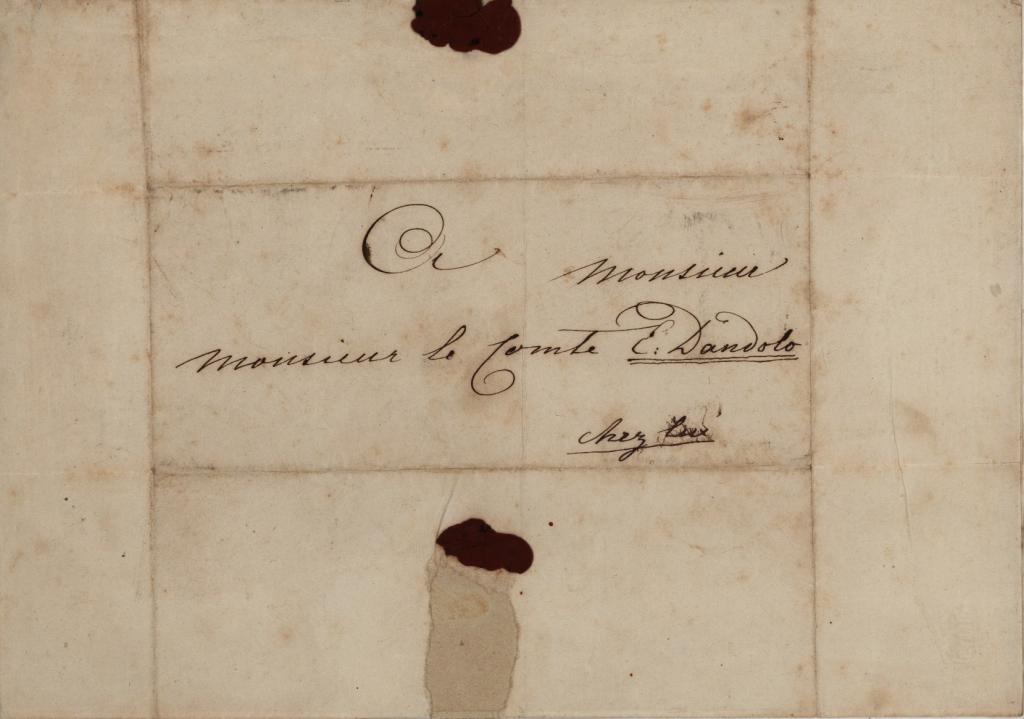 A Monsieur
Monsieur le Comte E: Dandolo
chez lui